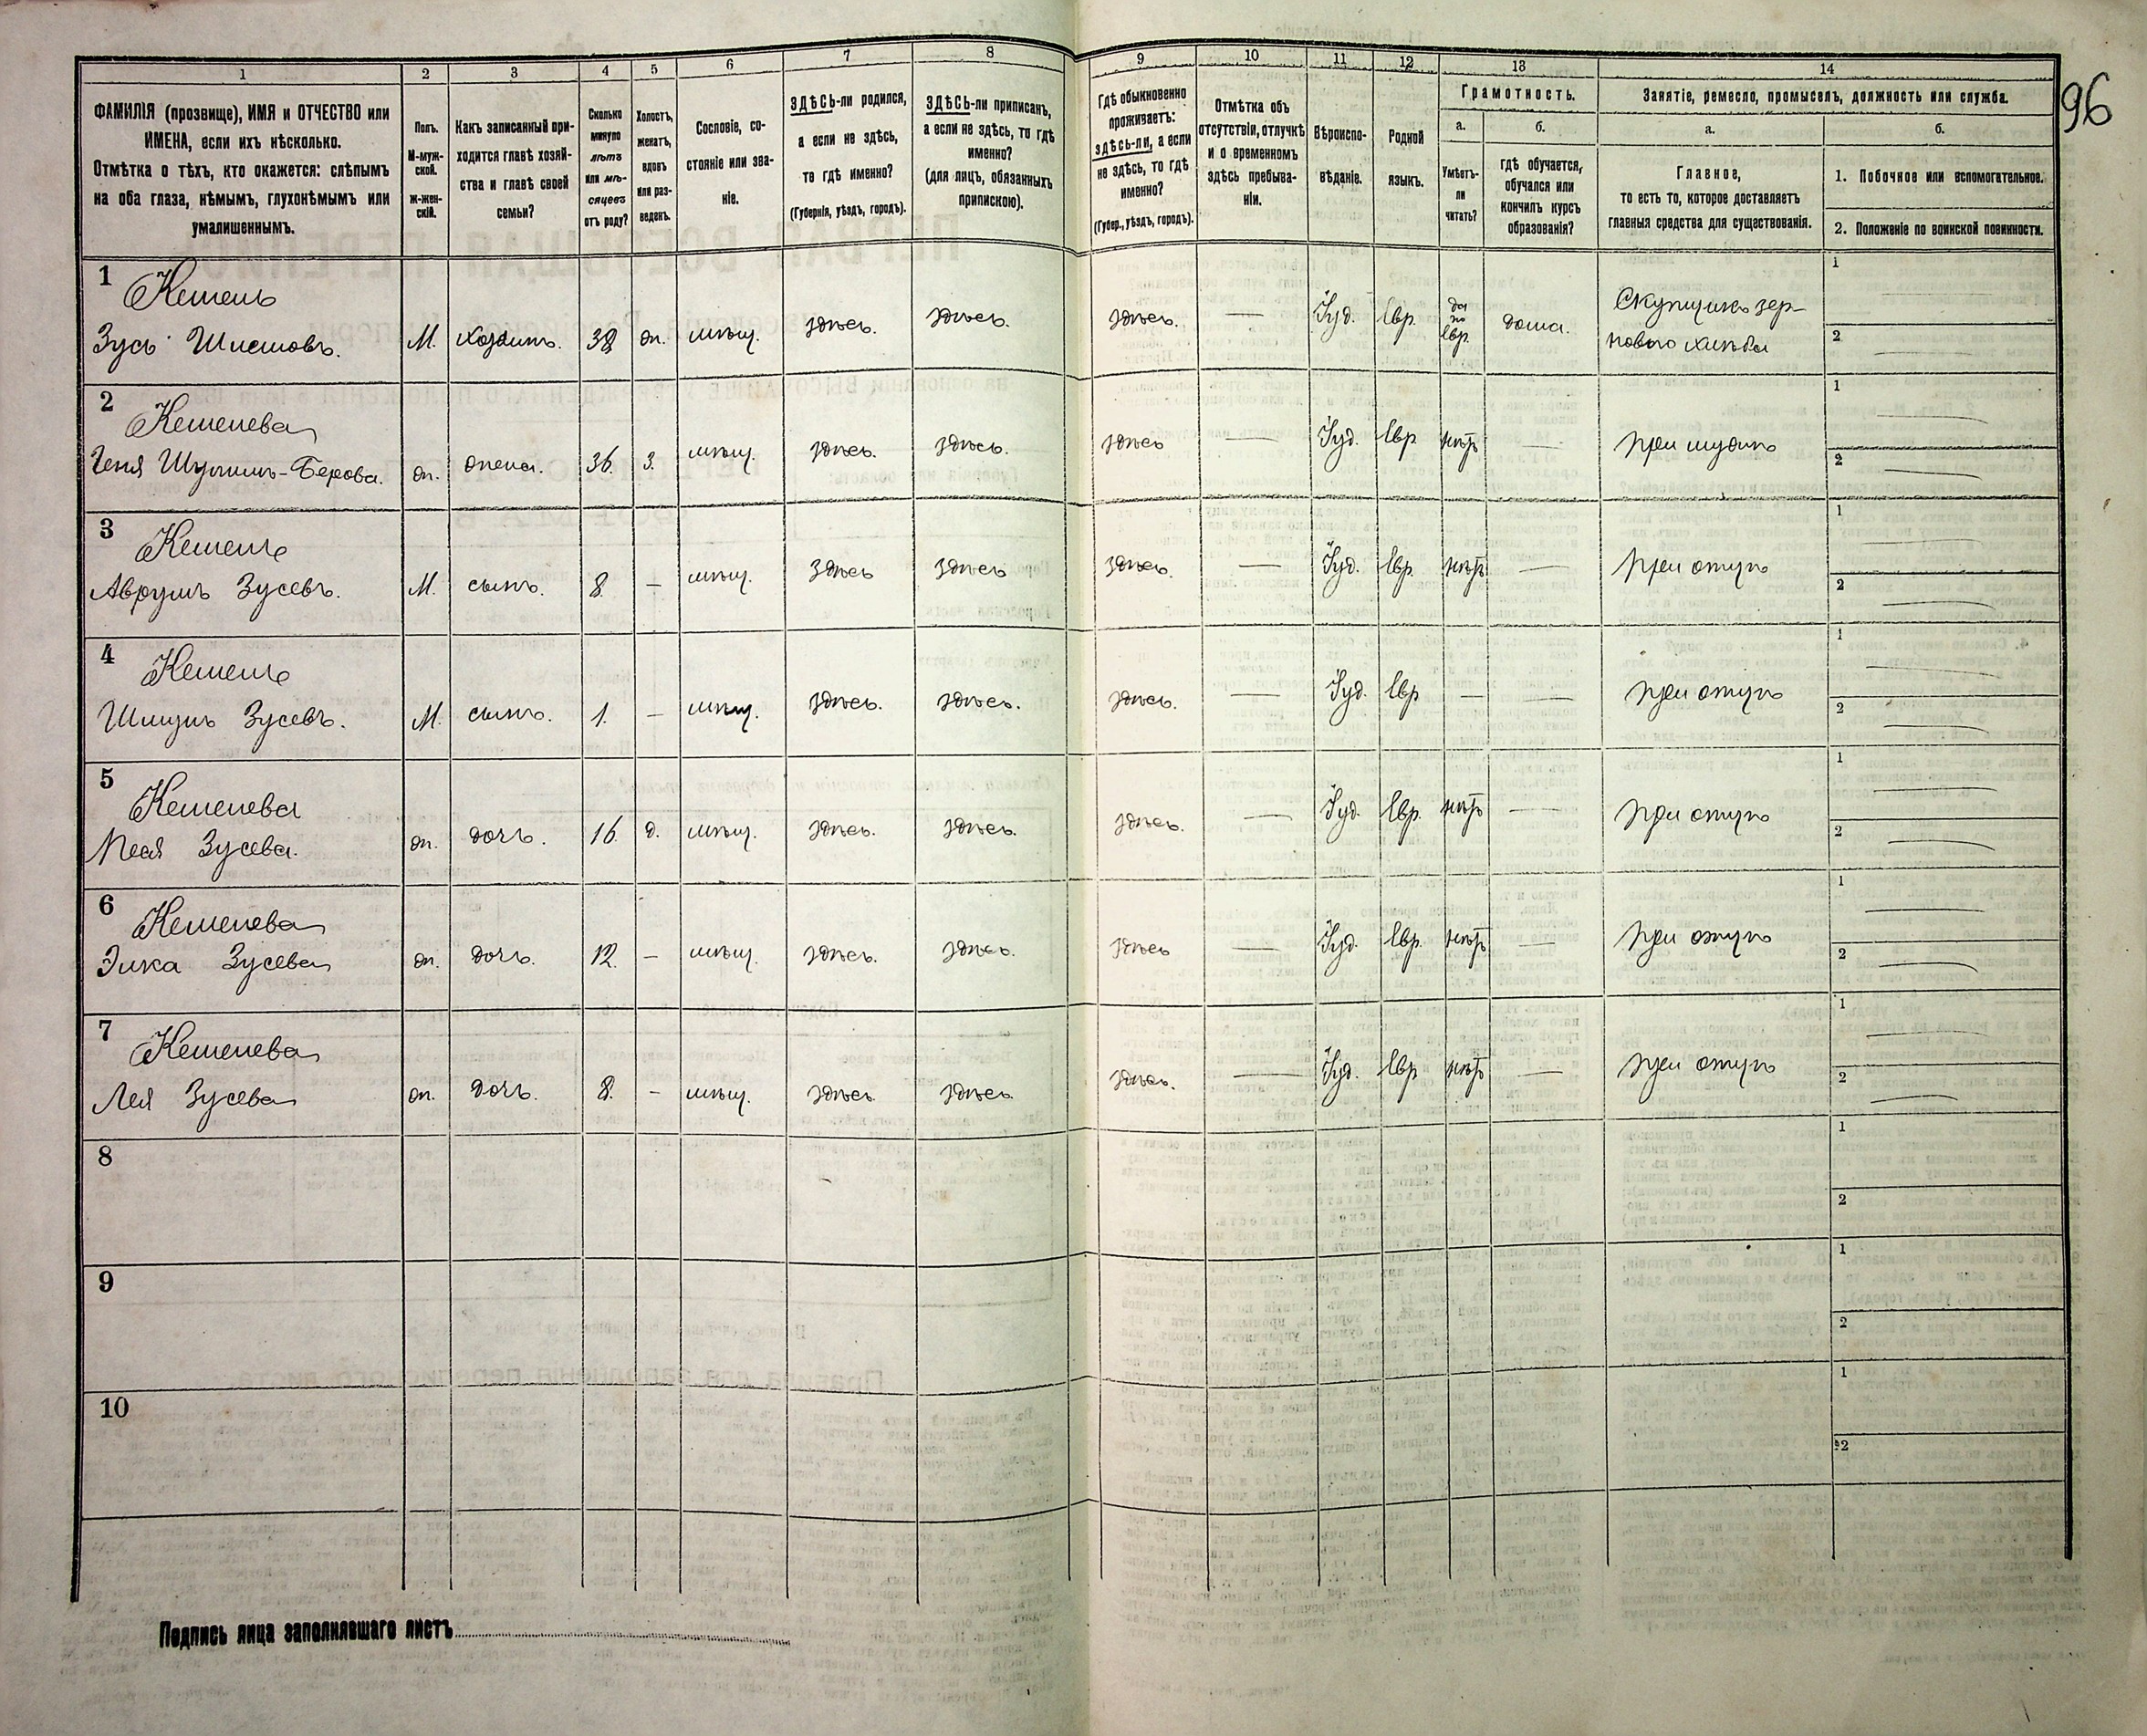 96
1 2 3 4 5 6 7 8 9 10 11 12 13 14
ФАМИЛІЯ (прозвище), ИМЯ и ОТЧЕСТВО или
ИМЕНА, если ихъ нѣсколько.
Отмѣтка о тѣхъ, кто окажется: слѣпымъ
на оба глаза, нѣмымъ, глухонѣмымъ или
умалишеннымъ.
Полъ.
М-муж-
ской.
ж-жен-
скій.
Какъ записанный при-
ходится главѣ хозяй-
ства и главѣ своей
семьи?
Сколько
минуло
лѣтъ
или мѣ-
сяцевъ
отъ роду?
Холостъ,
женатъ,
вдовъ
или раз-
веденъ.
Сословіе, со-
стояніе или зва-
ніе.
ЗДѢСЬ-ли родился,
а если не здѣсь,
то гдѣ именно?
(Губернія, уѣздъ, городъ).
ЗДѢСЬ-ли приписанъ,
а если не здѣсь, то гдѣ
именно?
(для лицъ, обязанныхъ
припискою).
Гдѣ обыкновенно
проживаетъ:
здѣсь-ли, а если
не здѣсь, то гдѣ
именно?
(Губер., уѣздъ, городъ).
Отмѣтка объ
отсутствіи, отлучкѣ
и о временномъ
здѣсь пребыва-
ніи.
Вѣроиспо-
вѣданіе.
Родной
языкъ.
Грамотность.
а.
Умѣетъ-
ли
читать?
б.
гдѣ обучается,
обучался или
кончилъ курсъ
образованія?
Занятіе, ремесло, промыселъ, должность или служба.
а.
Главное,
то есть то, которое доставляетъ
главныя средства для существованія.
б.
1. Побочное или вспомогательное.
2. Положеніе по воинской повинности.
1
Кешень
Зусь Шмемовъ. М. хозяинъ. 38 жн. мѣщ. здѣсь. здѣсь. здѣсь. — Іуд. Евр. да по Евр. дома. Скупщикъ зер-
нового хлѣба
1
2 —
2
Кешенева
Геня Шулимъ-Берова. жн. жена. 36. З. мѣщ. здѣсь. здѣсь. здѣсь — Іуд. Евр нѣтъ — при мужѣ
1 —
2 —
3
Кешень
Аврумъ Зусевъ. М. сынъ. 8. — мѣщ. здѣсь здѣсь здѣсь. — Іуд. Евр. нѣтъ — при отцѣ
1 —
2 —
4
Кешень
Шмуль Зусевъ. М. сынъ. 1. — мѣщ. здѣсь. здѣсь. здѣсь. — Іуд. Евр — — при отцѣ
1 —
2 —
5
Кешенева
Песя Зусева. жн. дочь. 16. д. мѣщ. здѣсь. здѣсь. здѣсь. — Іуд. Евр. нѣтъ — при отцѣ
1
2 —
6
Кешенева
Элка Зусева жн. дочь. 12. — мѣщ. здѣсь. здѣсь. здѣсь — Іуд. Евр. нѣтъ — при отцѣ
1 —
2 —
7
Кешенева
Лея Зусева жн. дочь. 8. — мѣщ. здѣсь. здѣсь. здѣсь. — Іуд. Евр нѣтъ — при отцѣ
1 —
2 —
8
1
2
9
1
2
10
1
2
Подпись лица заполнявшаго листъ